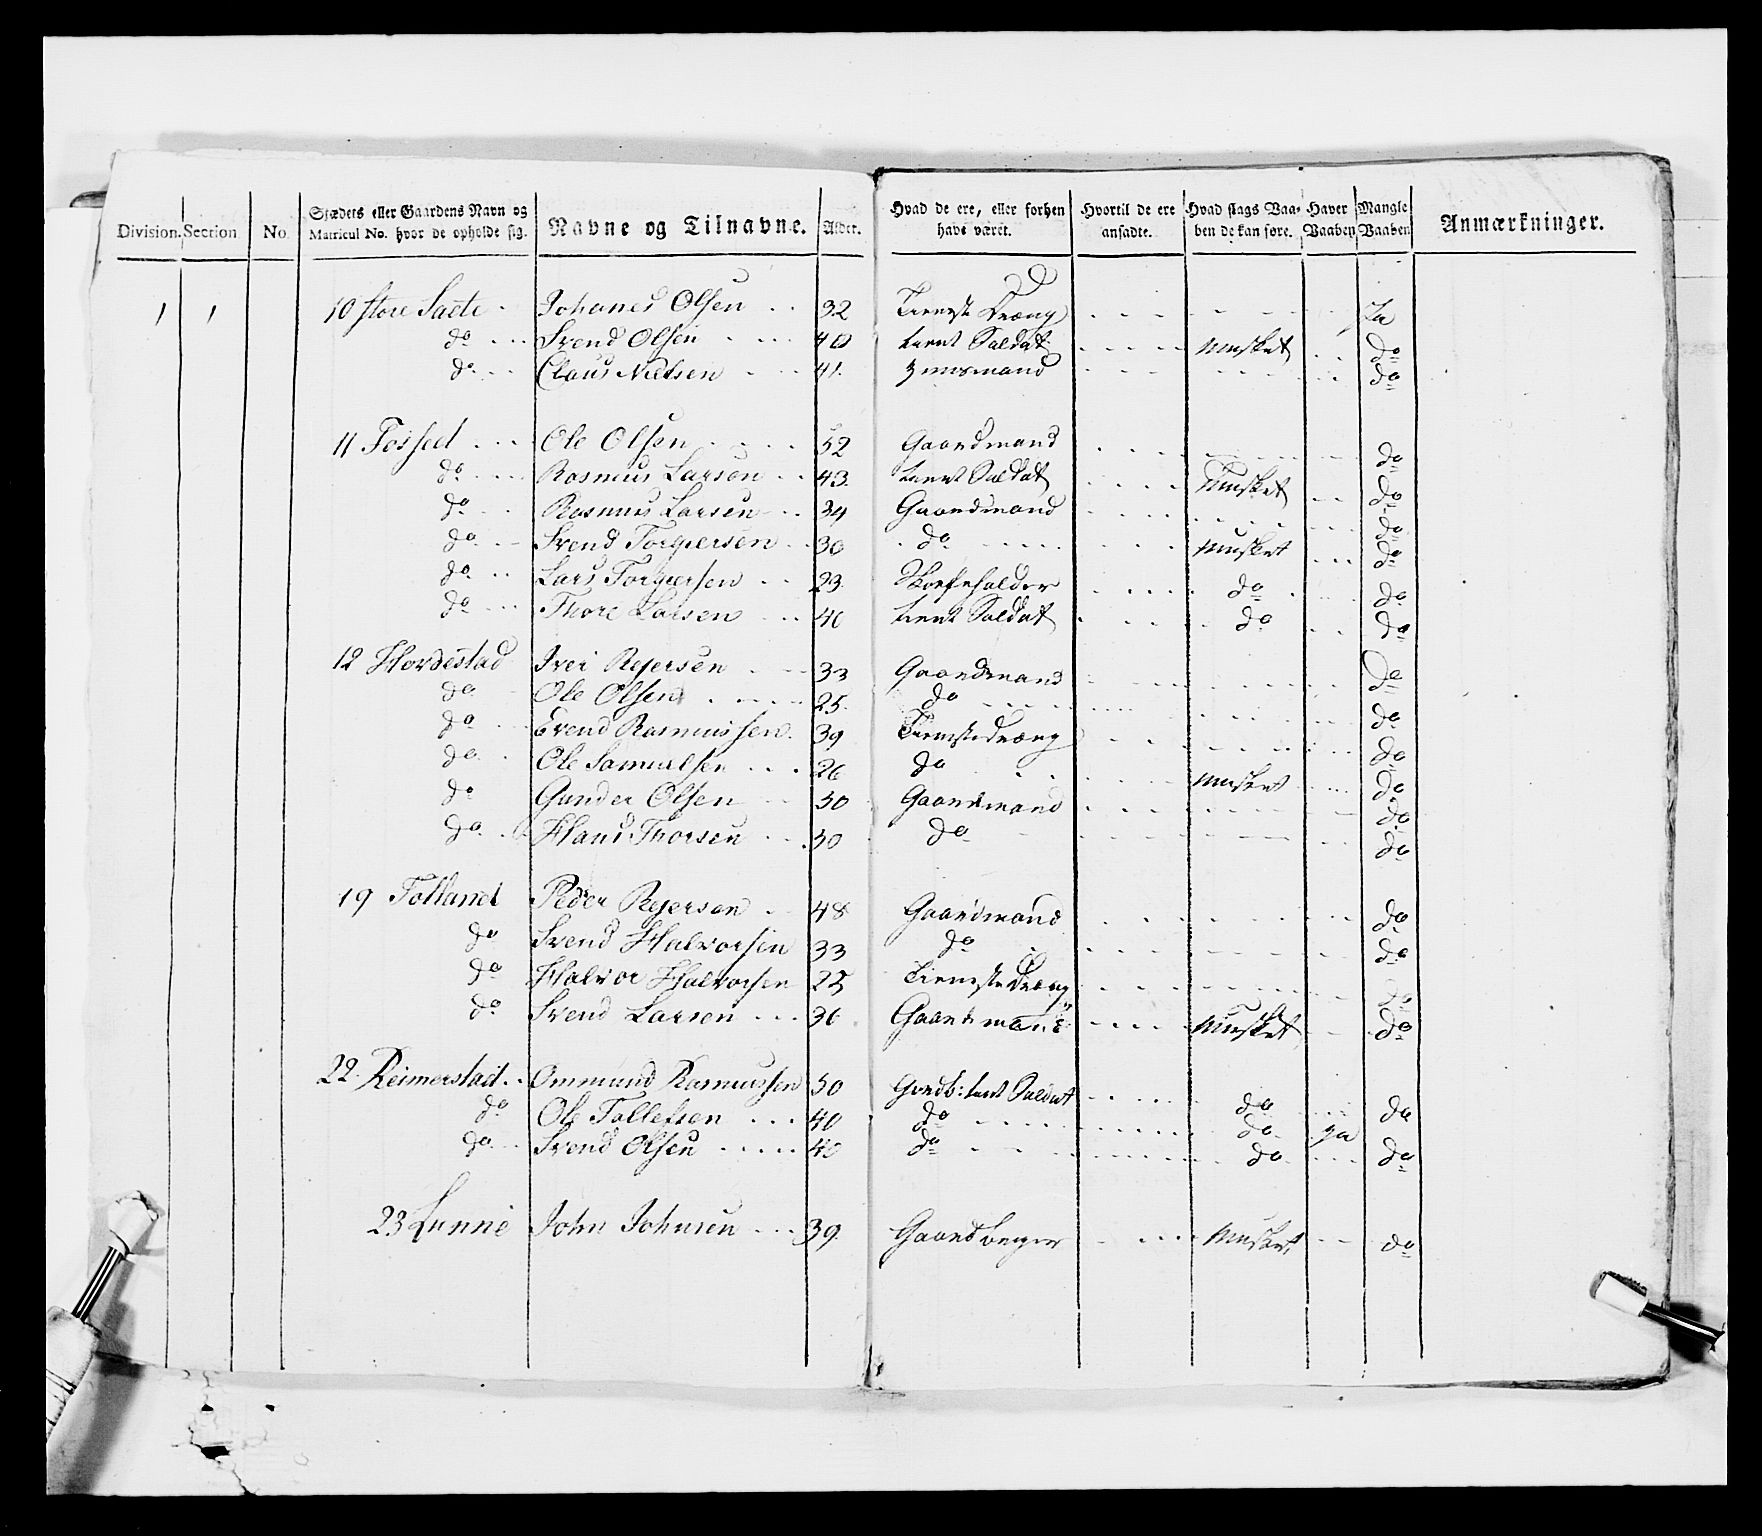 Division. Section. No. Stædets eller Gaardens Navn og Matricul No. hvor de opholde sig. Navne og Tilnavne. Alder. Hvad de ere, eller forhen have været. Hvortil de ere ansadte. Hvad slags Vaaben de kan føre. Haver Vaaben Mangle Vaaben Anmærkninger.
1 1 10 Store Sæte Johanes Olsen 32 Tieneste Dræng Ja
do Svend Olsen 40 tient Soldat Musket do
do Claus Nielsen 41. Huusmand do
11 Fossed Ole Olsen 52 Gaardmand do
do Rasmus Larsen 43. tient Soldat Musket do
do Rasmus Larsen 34 Gaardmand do
do Svend Torgiersen 30 do Musket do
do Lars Torgiersen 23. do do
do Thore Larsen 40 tient Soldat do do
12 Hordestad Iver Rejersen 33 Gaardmand do
do Ole Olsen 25. do do
do Evend Rasmussen 39 Tieneste Dræng do
do Ole Samuelsen 26 do Musket do
do Gunder Olsen 50 Gaardmand do
do Hans Thorsen 30 do do
19 Tolland Peder Rejersen 48 Gaardmand do
do Svend Halvorsen 33 do do
do Halvor Halvorsen 25 Tieneste Dræng do
do Svend Larsen 36 Gaardmand Musket do
22. Reimerstad Ommund Rasmussen 50 Gardb: tient Soldat do do
do Ole Tollefsen 40 do do Ja
do Svend Olsen 40 do do do
23 Lunne John Johnsen 39. Gaardbruger Musket do